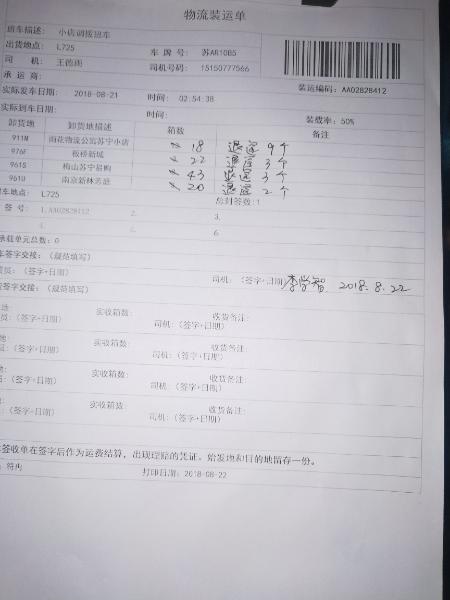 物流装运单
班车描述: 小店调拨班车
出货地点: L725 车 牌 号: 苏AR10B5
司 机: 王德 司机号码: 15150777566
承 运 商: 装运编码: AA02828412
实际发车日期: 2018-08-21 时间: 02:54:38
实际到车日期: 时间: 装载率: 50%
卸货地 卸货地描述 箱数 备注
911M 雨花物流公寓苏宁小店 18 退 9个
976F 板桥新城 22 退 3个
961S 梅山苏宁易购 43 退 3个
961U 南京新林芳庭 20 退 2个
车地点: L725 总封签数:1
签 号: 1.AA02828412 2. 3.
4. 5. 6.
承载单元总数: 0
车签字交接: (规范填写)
员: (签字+日期) 司机: (签字+日期) 李学智 2018.8.22
签字交接: (规范填写)
地: 实收箱数: 收货备注:
员: (签字+日期) 司机: (签字+日期)
地: 实收箱数: 收货备注:
员: (签字+日期) 司机: (签字+日期)
地: 实收箱数: 收货备注:
(签字+日期) 司机: (签字+日期)
地: 实收箱数: 收货备注:
(签字+日期) 司机: (签字+日期)
签收单在签字后作为运费结算,出现理赔的凭证。始发地和目的地留存一份。
: 符冉 打印日期: 2018-08-22